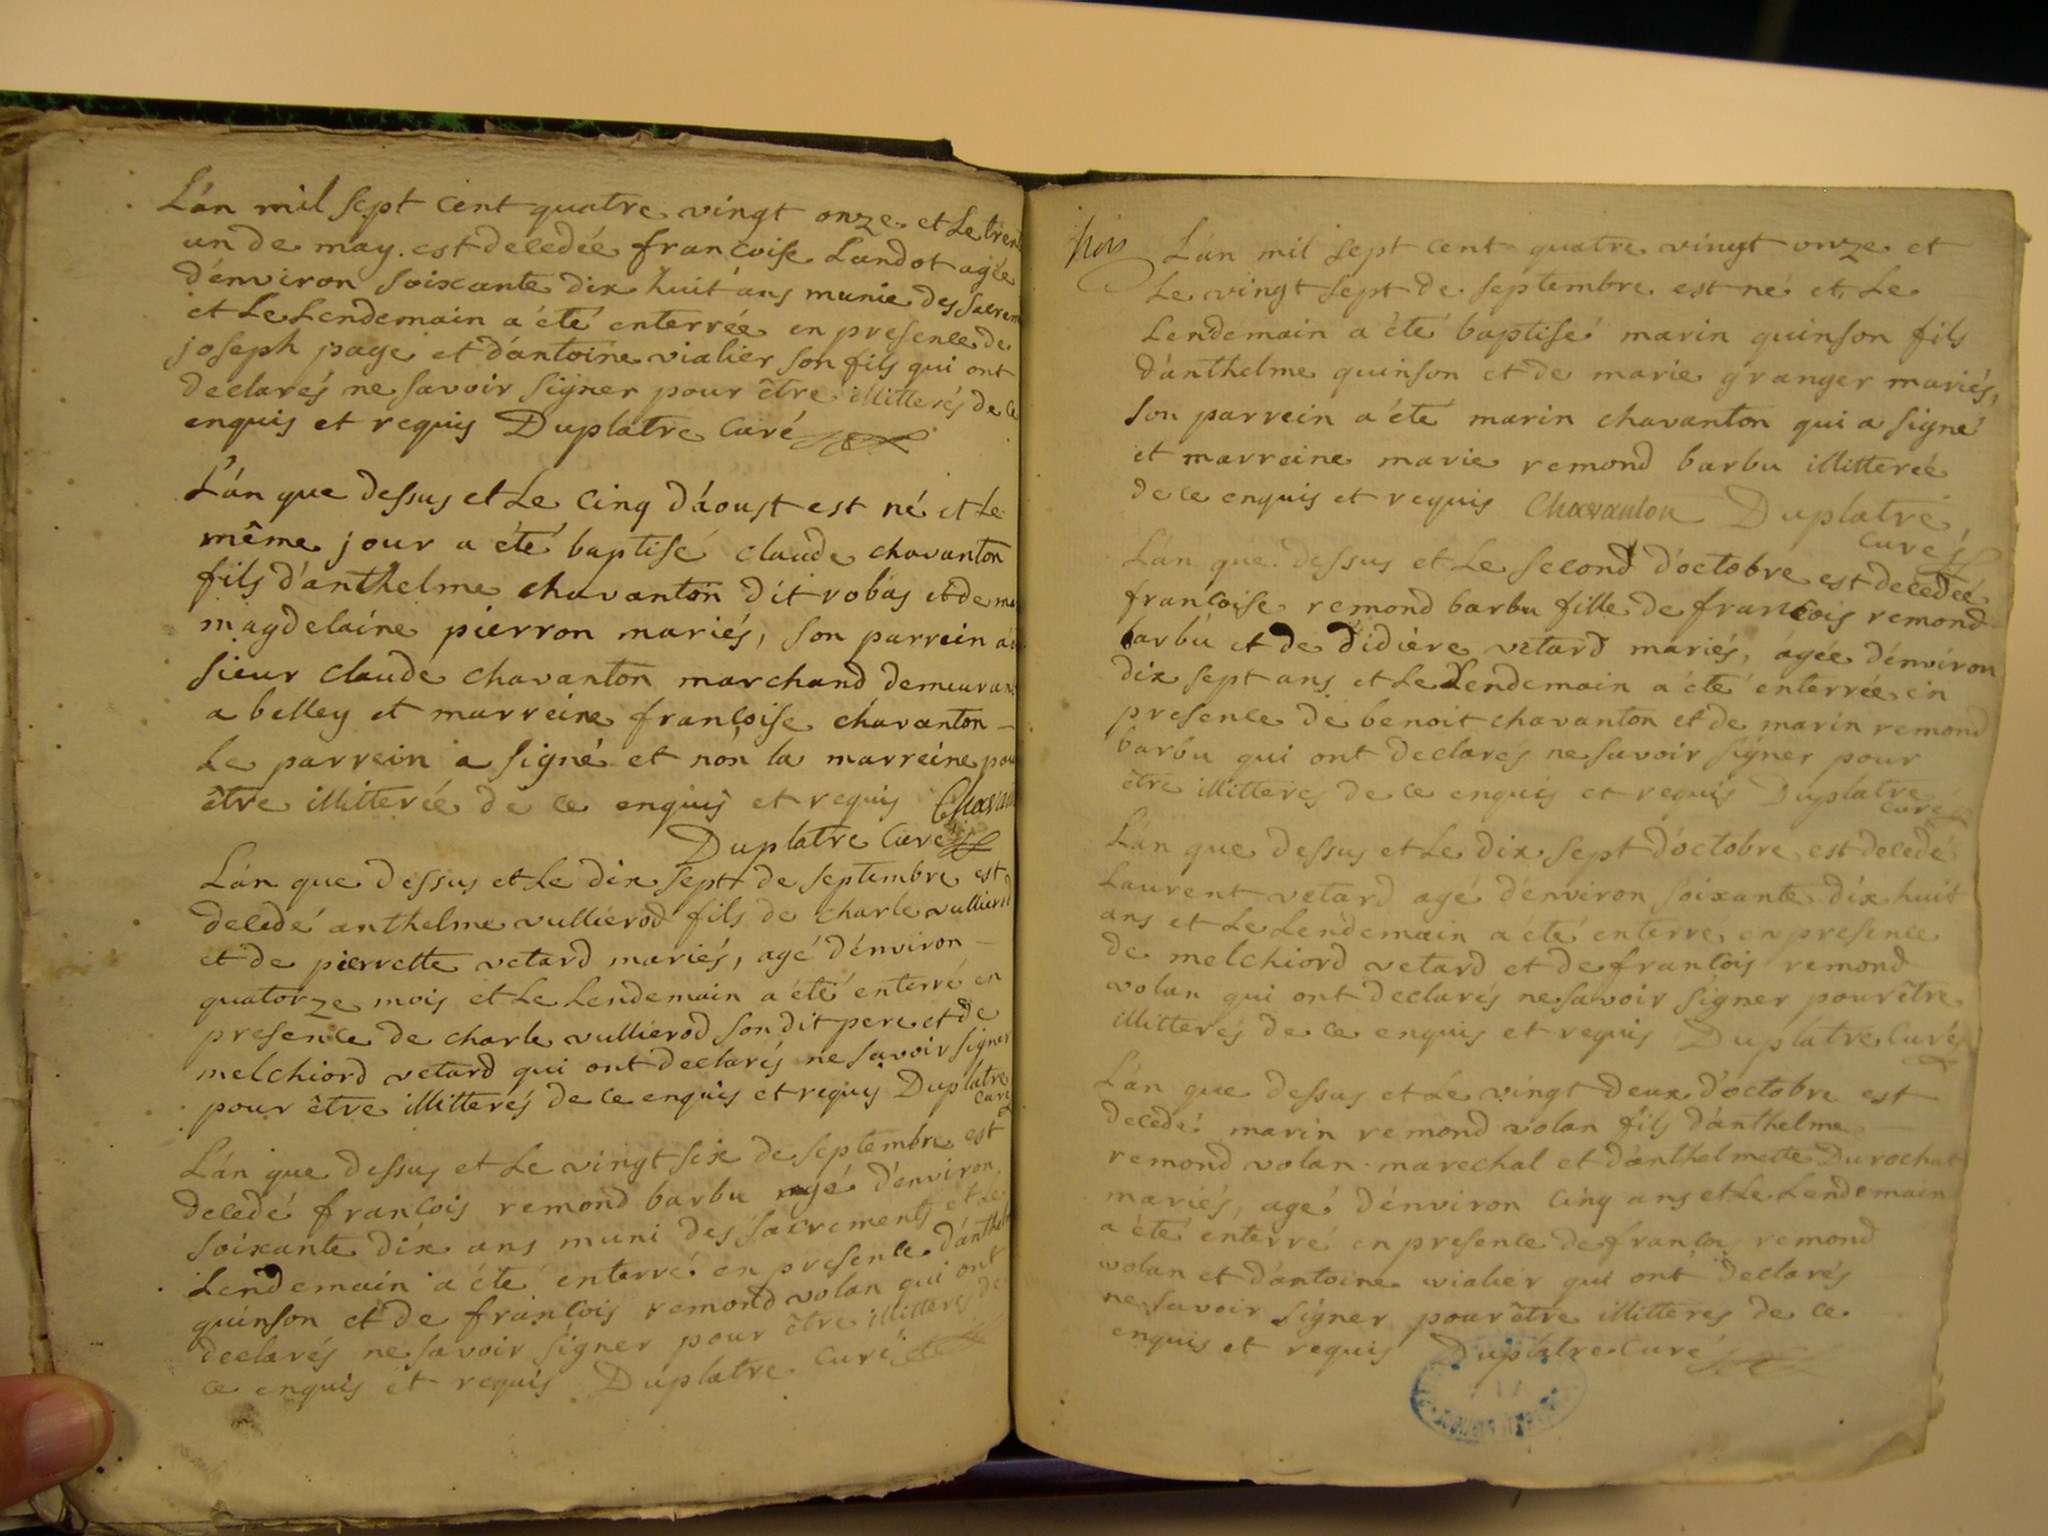 L'án mil sept cent quatre vingt onze et Le trent
un de may. est decedée francoise Landot agée
d'énviron soixante dix huit ans munie des Sacrem
et Le Lendemain a été enterrée en presence de
joseph page et d'antoine vialier son fils qui ont
declarés ne savoir signer pour être illitterés de ce
enquis et requis Duplatre Curé
L'án que dessus et Le Cinq d'áoust est né et Le
même jour a été baptisé claude chavanton
fils d'anthelme chavanton dit robas et de ma
magdelaine pierron mariés, son parrein a é
sieur claude chavanton marchand demeurans
a belley et marreine françoise chavanton
Le parrein a signé et non la marreine pou
être illitterée de ce enquis et requis Chavan
Duplatre Curé
L'án que dessus et Le dix sept de septembre est
decedé anthelme vullierod fils de charle vullierod
et de pierrette vetard mariés, agé d'énviron
quatorze mois et Le Lendemain a été enterré en
presence de charle vullierod son dit pere et de
melchiord vetard qui ont declarés ne savoir signer
pour être illitterés de ce enquis et requis Duplatre
Curé
L'án que dessus et Le vingt six de septembre est
decedé francois remond barbu agé d'énviron
soixante dix ans muni des sacrements et Le
Lendemain a été enterré en presence d'ánthelm
quinson et de francois remond volan qui ont
declarés ne savoir signer pour être illitterés de
ce enquis et requis Duplatre Curé
L'án mil sept cent quatre vingt onze et
Le vingt sept de septembre est né et Le
Lendemain a été baptisé marin quinson fils
d'anthelme quinson et de marie granger mariés,
son parrein a été marin chavanton qui a signé
et marreine marie remond barbu illitterée
de ce enquis et requis Chavanton Duplatre
Curé
L'án que dessus et Le second d'octobre est decedée
francoise remond barbu fille de francois remond
barbu et de didiere vetard mariés, ágee d'énviron
dix sept ans et Le Lendemain a été enterrée en
presence de benoit chavanton et de marin remond
barbu qui ont declarés ne savoir signer pour
être illitterés de ce enquis et requis Duplatre
Curé
L'án que dessus et Le dix sept d'octobre est decedé
Laurent vetard agé d'énviron soixante dix huit
ans et Le Lendemain a été enterré en presence
de melchiord vetard et de francois remond
volan qui ont declarés ne savoir signer pour être
illitterés de ce enquis et requis Duplatre Curé
L'án que dessus et Le vingt deux d'octobre est
decedé marin remond volan fils d'ánthelme
remond volan marechal et d'ánthelmette Durochat
mariés, agé d'énviron Cinq ans et Le Lendemain
a été enterré en presence de francois remond
volan et d'ántoine vialier qui ont declarés
ne savoir signer pour être illitteres de ce
enquis et requis Duplatre Curé